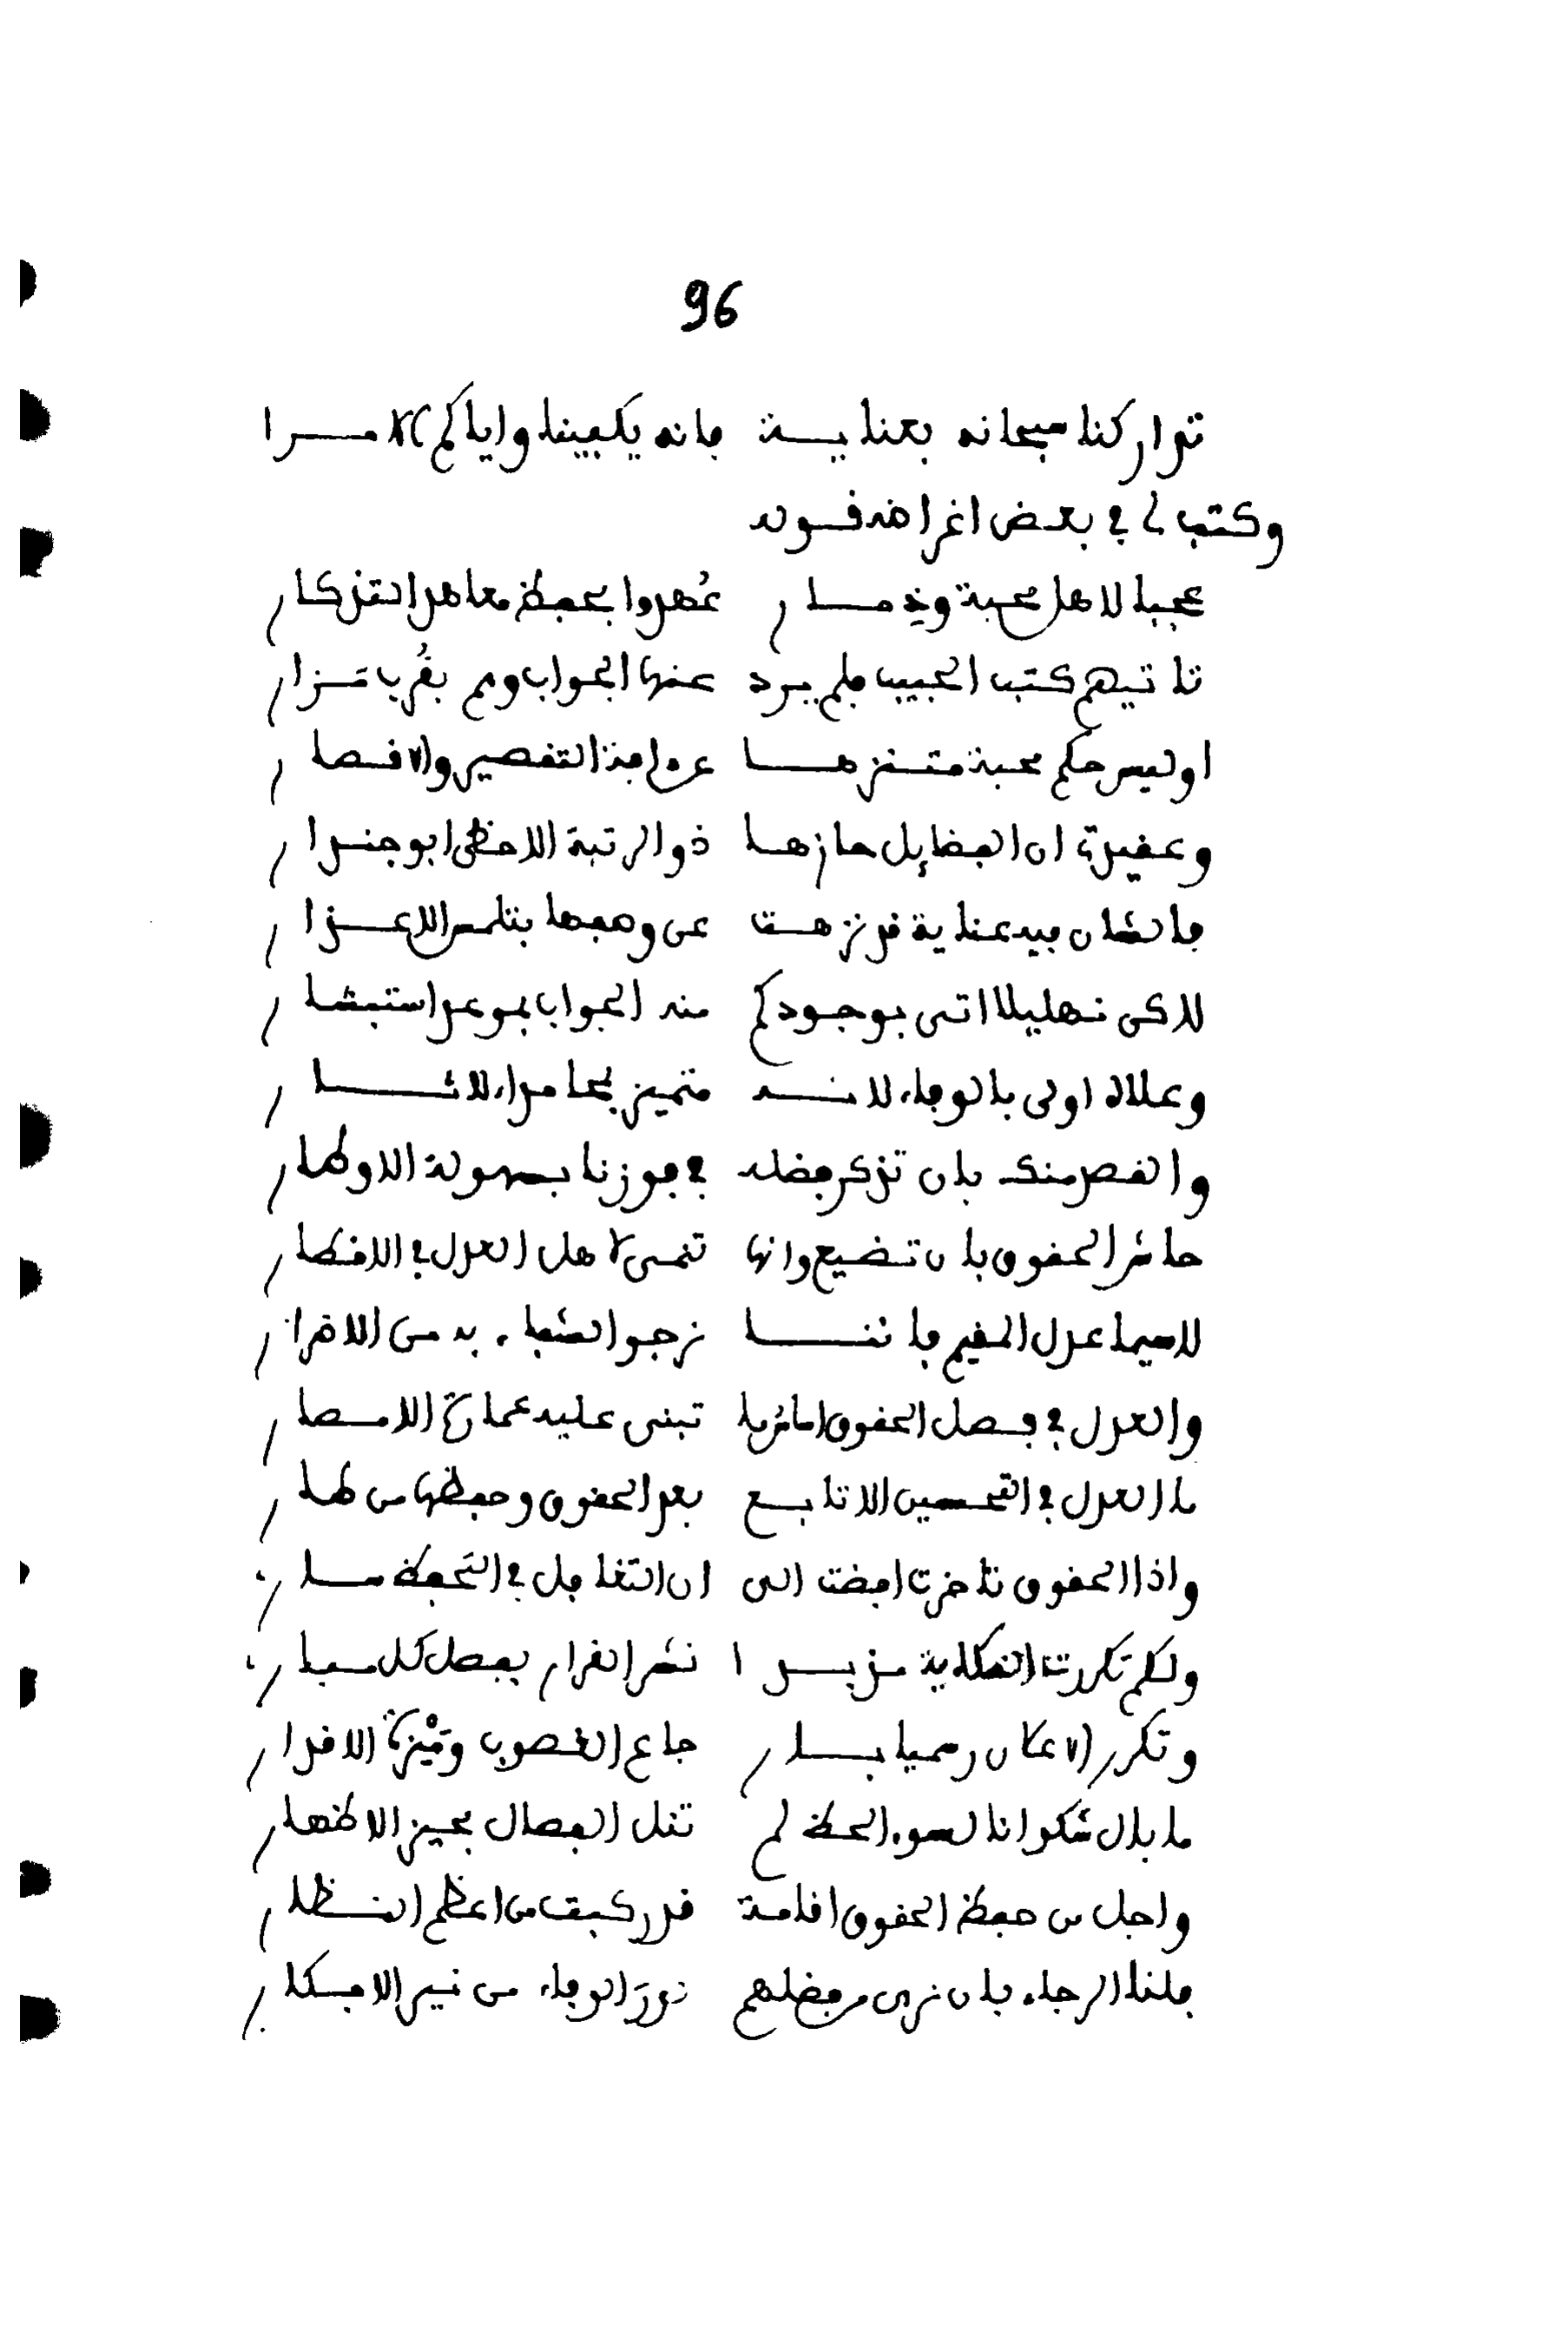 96
تداركنا سبحانه بعناية فانه يكفينا واياكم الامرا
وكتب لى في بعض اغراضه قوله
عجبا لاهل محبة وذمار عهدوا بحفظ معاهد التذكار
تاتيهم كتب الحبيب فلم يرد عنها الجواب وهم بقُرب مَزار
اوليس حكم محبة متنزها عن وصمة التقصير والاقصار
وعقيدتى ان الفضايل حازها ذو الرتبة الاحظى ابو جندار
فالشان فيه عناية قد نزهت عن وصفها بتلمس الاعذار
لاكن تهليلا اتى بوجودكم منه الجواب بموعد استبشار
وعلاك اولى بالوفاء لانه متميز بمحامد الاثار
والقصد منك بان تذكر فضله في فوزنا بسهولة الاوطار
حاشى الحقوق بان تضيع وانها تنمى لاهل العدل في الاقطار
لاسيما عدل المقيم فاننا نرجو الشفاء به من الاضرار
والعدل في فصل الحقوق اساس تبنى عليه عمارة الامصار
ما العدل في التحسين الا تابع بعد الحقوق وحفظها من طار
واذا الحقوق تاخرت افضت الى ان التغافل في التحفظ سار
ولكم تكررت الشكاية مذ بدا نشر القرار بفصل كل سبار
وتكرر الاعلان رسميا بسار جاع الغصوب وَمَيْزة الاقرار
ما بال شكوانا لسوء الحظ لم تنل الفصال بحيز الاظهار
واجل من حفظ الحقوق اقامة قد ركبت من اعظم النظار
فلنا الرجاء بان نرى من فضلهم نورَ الوفاء من نير الافكار